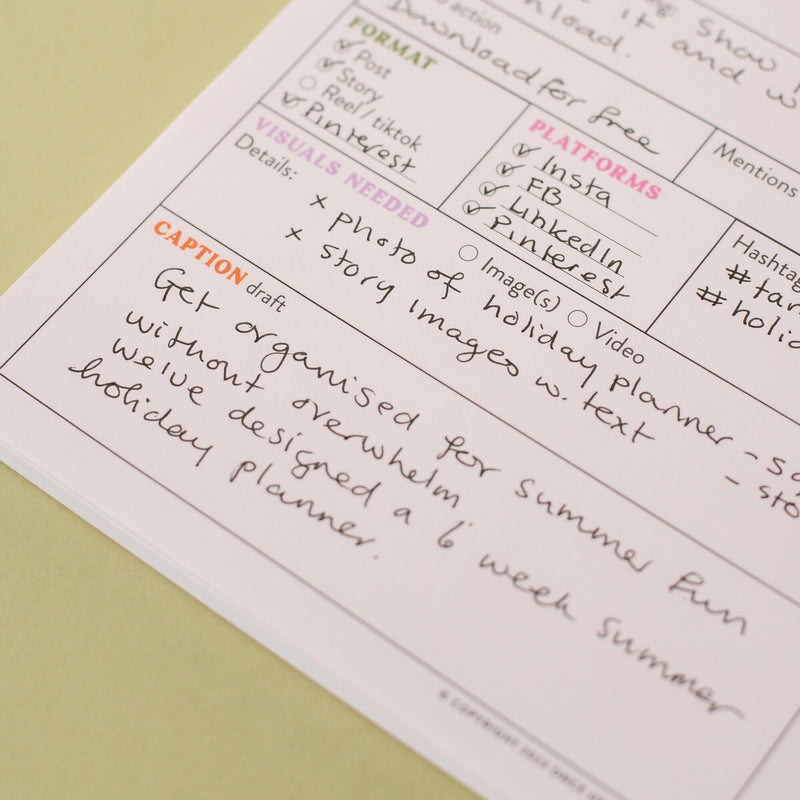 Show
it and w
nload.
action
Download for free
FORMAT
Post
Story
Reel/tiktok
Pinterest
PLATFORMS
Insta
FB
LinkedIn
Pinterest
Mentions
Hashtag
#tar
#holid
VISUALS NEEDED
Details:
Image(s) Video
x photo of holiday planner -
x story images w. text - sto
CAPTION draft
Get organised for summer fun
without overwhelm
we've designed a 6 week summer
holiday planner.
© COPYRIGHT